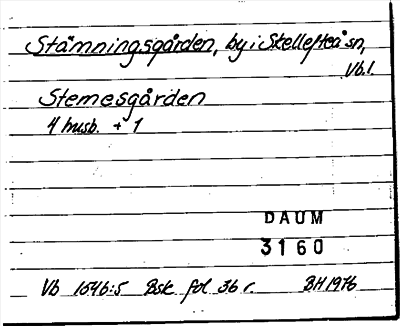 Stämningsgården, by i Skellefteå sn,
Vb.l.
Stemesgården
4 husb. + 1
DAUM
3160
Vb 1646:5 Bsk fol 36 r. BH 1976